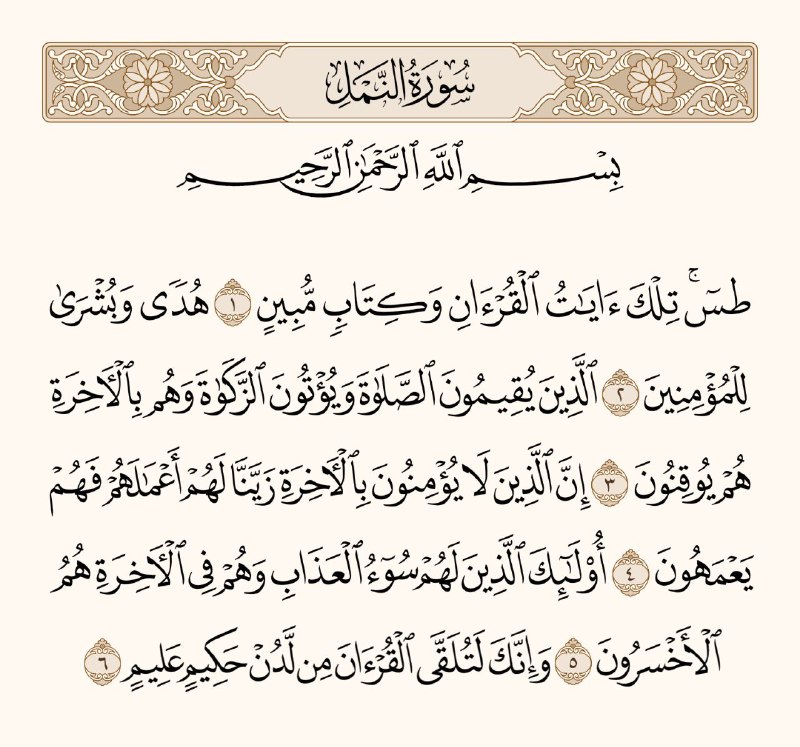 سُورَةُ النَّمۡلِ
بِسۡمِ ٱللَّهِ ٱلرَّحۡمَٰنِ ٱلرَّحِيمِ
طسٓۚ تِلۡكَ ءَايَٰتُ ٱلۡقُرۡءَانِ وَكِتَابٖ مُّبِينٍ ١ هُدٗى وَبُشۡرَىٰ
لِلۡمُؤۡمِنِينَ ٢ ٱلَّذِينَ يُقِيمُونَ ٱلصَّلَوٰةَ وَيُؤۡتُونَ ٱلزَّكَوٰةَ وَهُم بِٱلۡأٓخِرَةِ
هُمۡ يُوقِنُونَ ٣ إِنَّ ٱلَّذِينَ لَا يُؤۡمِنُونَ بِٱلۡأٓخِرَةِ زَيَّنَّا لَهُمۡ أَعۡمَٰلَهُمۡ فَهُمۡ
يَعۡمَهُونَ ٤ أُوْلَٰٓئِكَ ٱلَّذِينَ لَهُمۡ سُوٓءُ ٱلۡعَذَابِ وَهُمۡ فِي ٱلۡأٓخِرَةِ هُمُ
ٱلۡأَخۡسَرُونَ ٥ وَإِنَّكَ لَتُلَقَّى ٱلۡقُرۡءَانَ مِن لَّدُنۡ حَكِيمٍ عَلِيمٍ ٦